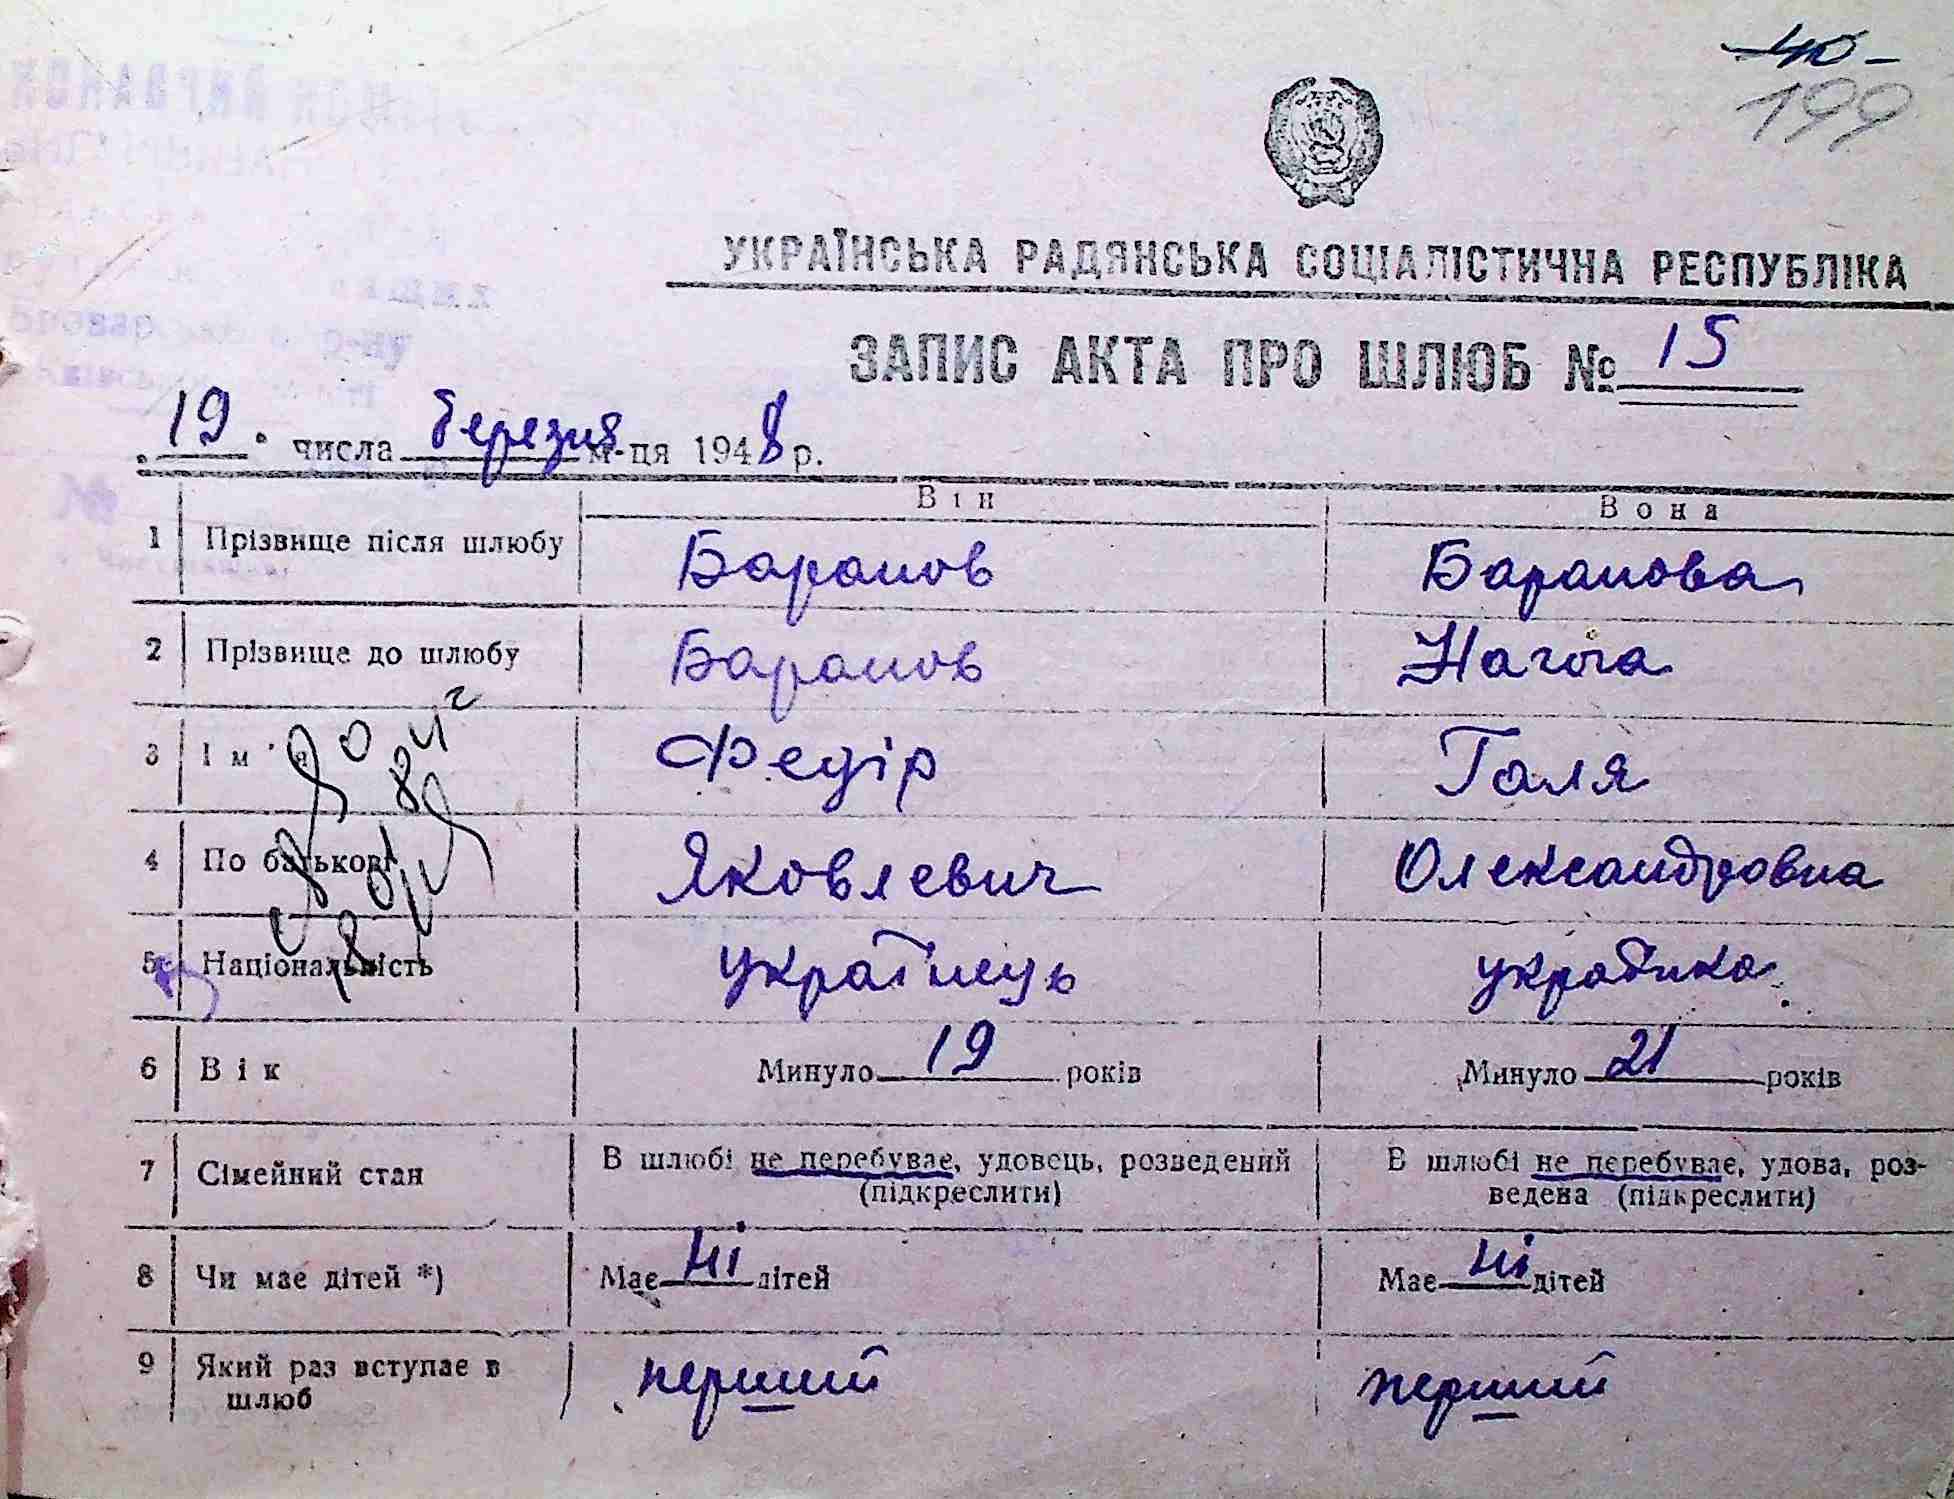 40 -
199
УКРАЇНСЬКА РАДЯНСЬКА СОЦІАЛІСТИЧНА РЕСПУБЛІКА
ЗАПИС АКТА ПРО ШЛЮБ № 15
19 числа березня м-ця 1948 р.
Він Вона
1 Прізвище після шлюбу Баранов Баранова
2 Прізвище до шлюбу Баранов Нагога
3 Ім'я Федір Галя
4 По батькові Яковлевич Олександровна
5 Національність українець українка
6 Вік Минуло 19 років Минуло 21 років
7 Сімейний стан В шлюбі не перебуває, удовець, розведений (підкреслити) В шлюбі не перебуває, удова, роз-
ведена (підкреслити)
8 Чи має дітей *) Має ні дітей Має ні дітей
9 Який раз вступає в шлюб перший перший